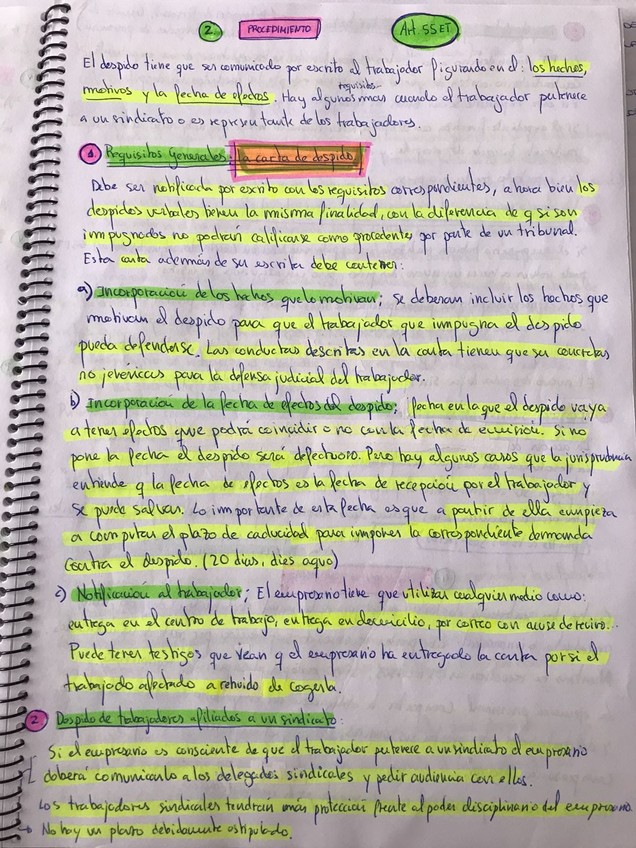 2. PROCEDIMIENTO Art. 55 ET
El despido tiene que ser comunicado por escrito al trabajador figurando en él: los hechos,
motivos y la fecha de efectos. Hay algunos requisitos mas cuando el trabajador pertenece
a un sindicato o es representante de los trabajadores.
1 Requisitos Generales: la carta de despido
Debe ser notificada por escrito con los requisitos correspondientes, ahora bien los
despidos verbales tienen la misma finalidad, con la diferencia de q si son
impugnados no podrán calificarse como procedentes por parte de un tribunal.
Esta carta además de ser escrita debe contener:
a) Incorporación de los hechos que lo motivan; Se deberan incluir los hechos que
motivan el despido para que el trabajador que impugna el despido
pueda defenderse. Las conductas descritas en la carta tienen que ser concretas
no genéricas para la defensa judicial del trabajador.
b) Incorporación de la fecha de efectos del despido; fecha en la que el despido vaya
a tener efectos que podrá coincidir o no con la fecha de emisión. Si no
pone la fecha el despido será defectuoso. Pero hay algunos casos que la jurisprudencia
entiende q la fecha de efectos es la fecha de recepción por el trabajador y
se puede salvar. Lo importante de esta fecha es que a partir de ella empieza
a computar el plazo de caducidad para imponer la correspondiente demanda
contra el despido. (20 dias, dies aquo)
c) Notificación al trabajador; El empresario tiene que utilizar cualquier medio como:
entrega en el centro de trabajo, entrega en domicilio, por correo con acuse de recivo...
Puede tener testigos que vean q el empresario ha entregado la carta por si el
trabajado afectado a rehuido de cogerla.
2 Despido de trabajadores afiliados a un sindicato:
Si el empresario es consciente de que el trabajador pertenece a un sindicato el empresario
deberá comunicarlo a los delegados sindicales y pedir audiencia con ellos.
Los trabajadores sindicales tendrán más protección frente al poder disciplinario del empresario.
→ No hay un plazo debidamente estipulado.